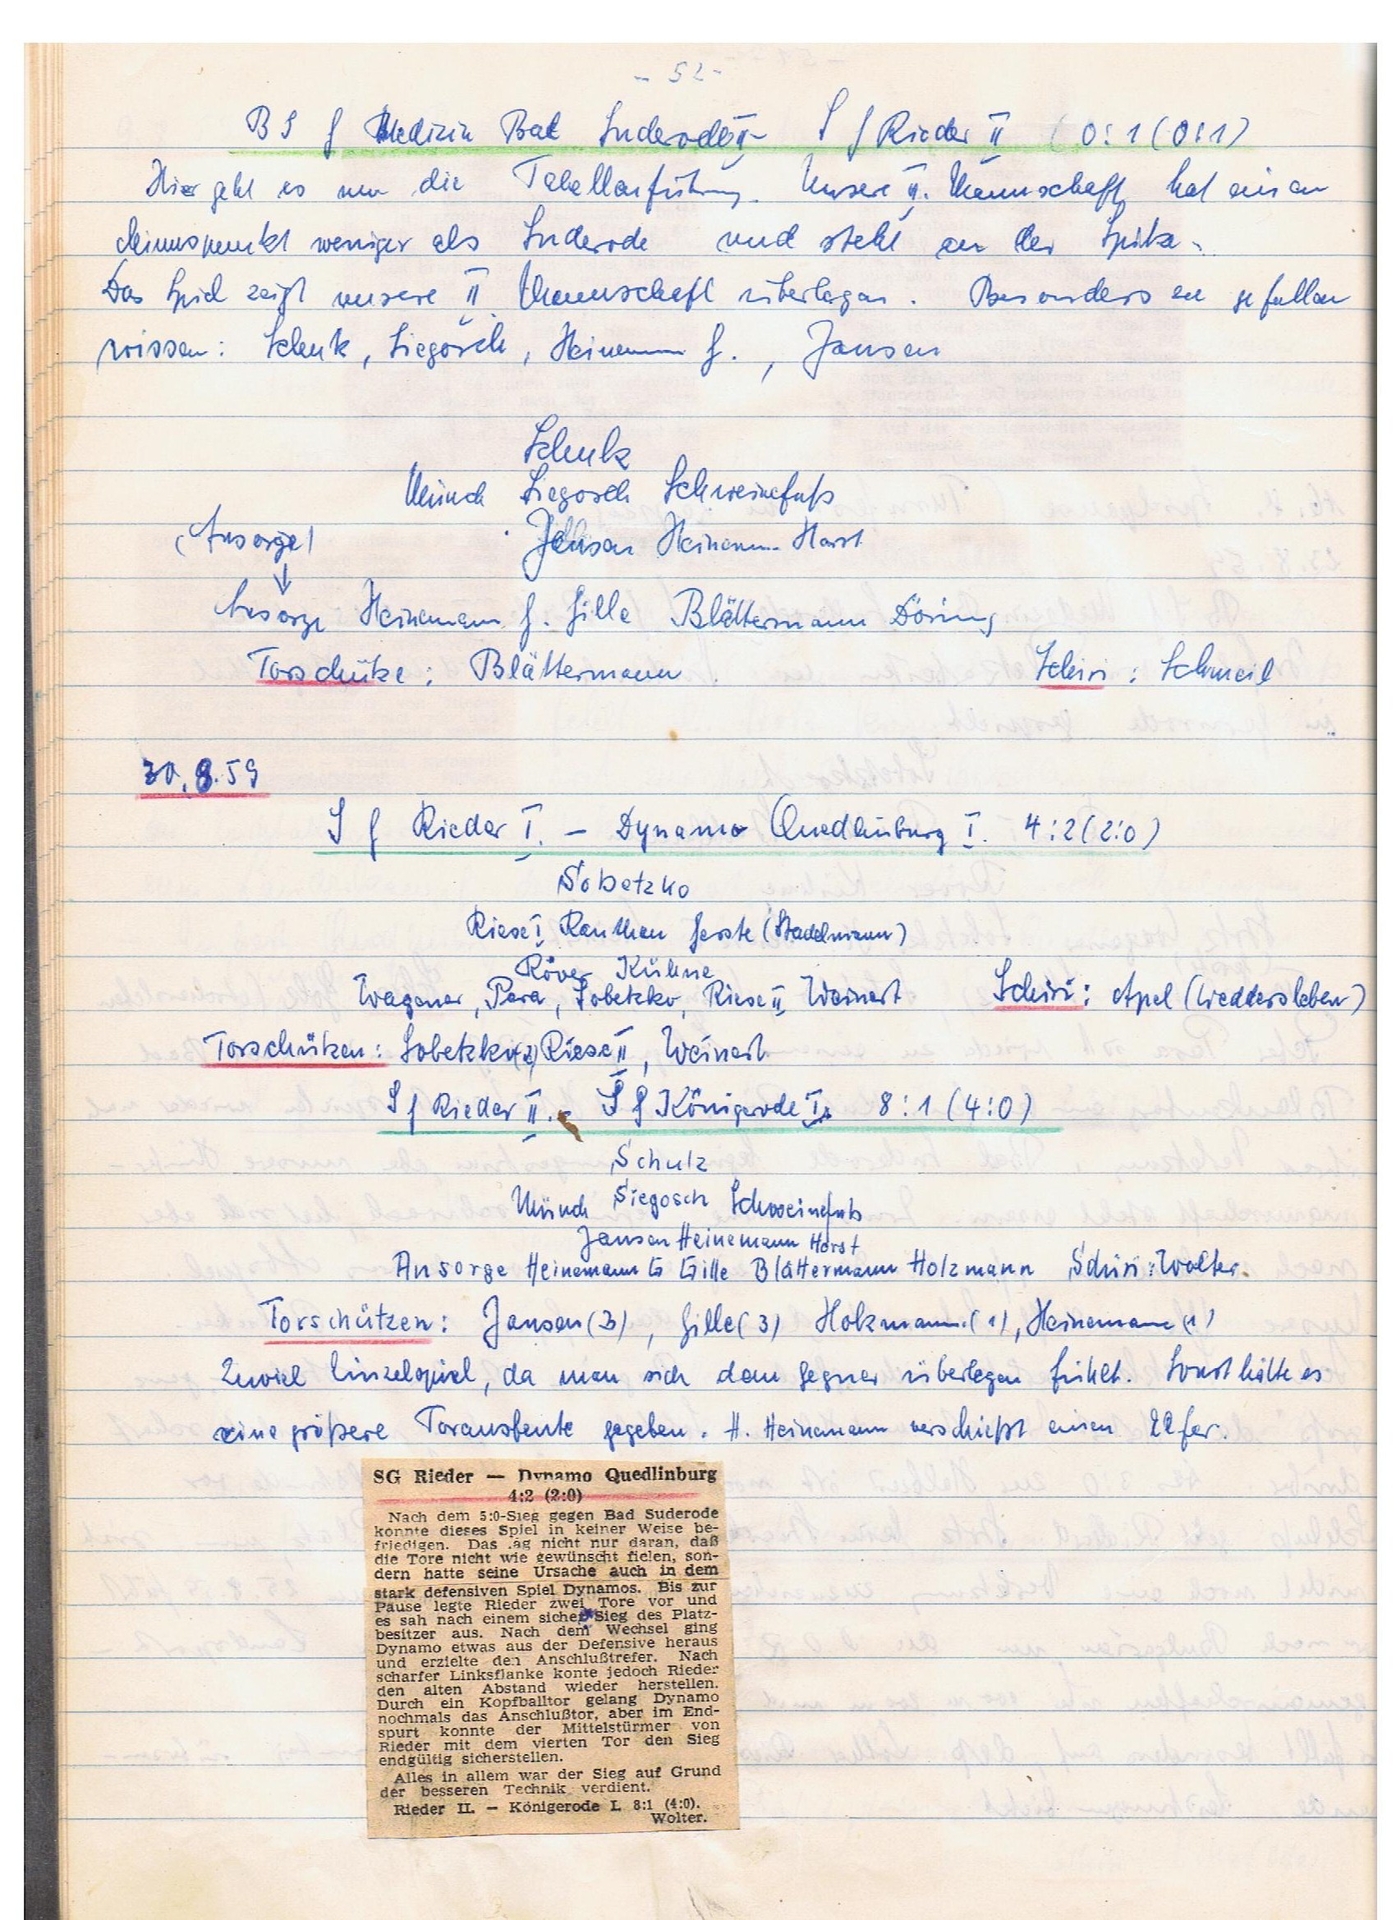 - 52 -
BSG Medizin Bad Suderode II - SG Rieder II (0:1 (0:1)
Hier geht es um die Tabellenführung. Unsere II. Mannschaft hat einen
Minuspunkt weniger als Suderode und steht an der Spitze.
Das Spiel zeigt unsere II. Mannschaft überlegen. Besonders zu gefallen
wissen: Schenk, Siegosch, Heinemann G., Jansen
Schenk
Münch Siegosch Schweinefuß
(Ansorge) Jansen Heinemann Horst
Ansorge Heinemann G. Gille Blättermann Döring
Torschütze: Blättermann. Schiri: Schmeil
30.8.59
SG Rieder I. - Dynamo Quedlinburg I. 4:2 (2:0)
Sobetzko
Riese I Ranthen Gerste (Stadelmann)
Röver Kühne
Wagener, Para, Sobetzko, Riese II, Weinert Schiri: Apel (Weddersleben)
Torschützen: Sobetzko (2) Riese II, Weinert
SG Rieder II. - SG Königerode I. 8:1 (4:0)
Schulz
Münch Siegosch Schweinefuß
Jansen Heinemann Horst
Ansorge Heinemann G Gille Blättermann Holzmann Schiri: Wolter.
Torschützen: Jansen (3), Gille (3) Holzmann (1), Heinemann (1)
Zuviel Einzelspiel, da man sich dem Gegner überlegen fühlt. Sonst hätte es
eine größere Torausbeute gegeben. H. Heinemann verschießt einen 11er.
SG Rieder — Dynamo Quedlinburg
4:2 (2:0)
Nach dem 5:0-Sieg gegen Bad Suderode
konnte dieses Spiel in keiner Weise be-
friedigen. Das lag nicht nur daran, daß
die Tore nicht wie gewünscht fielen, son-
dern hatte seine Ursache auch in dem
stark defensiven Spiel Dynamos. Bis zur
Pause legte Rieder zwei Tore vor und
es sah nach einem sicher Sieg des Platz-
besitzer aus. Nach dem Wechsel ging
Dynamo etwas aus der Defensive heraus
und erzielte den Anschlußtrefer. Nach
scharfer Linksflanke konte jedoch Rieder
den alten Abstand wieder herstellen.
Durch ein Kopfballtor gelang Dynamo
nochmals das Anschlußtor, aber im End-
spurt konnte der Mittelstürmer von
Rieder mit dem vierten Tor den Sieg
endgültig sicherstellen.
Alles in allem war der Sieg auf Grund
der besseren Technik verdient.
Rieder II. — Königerode I. 8:1 (4:0).
Wolter.